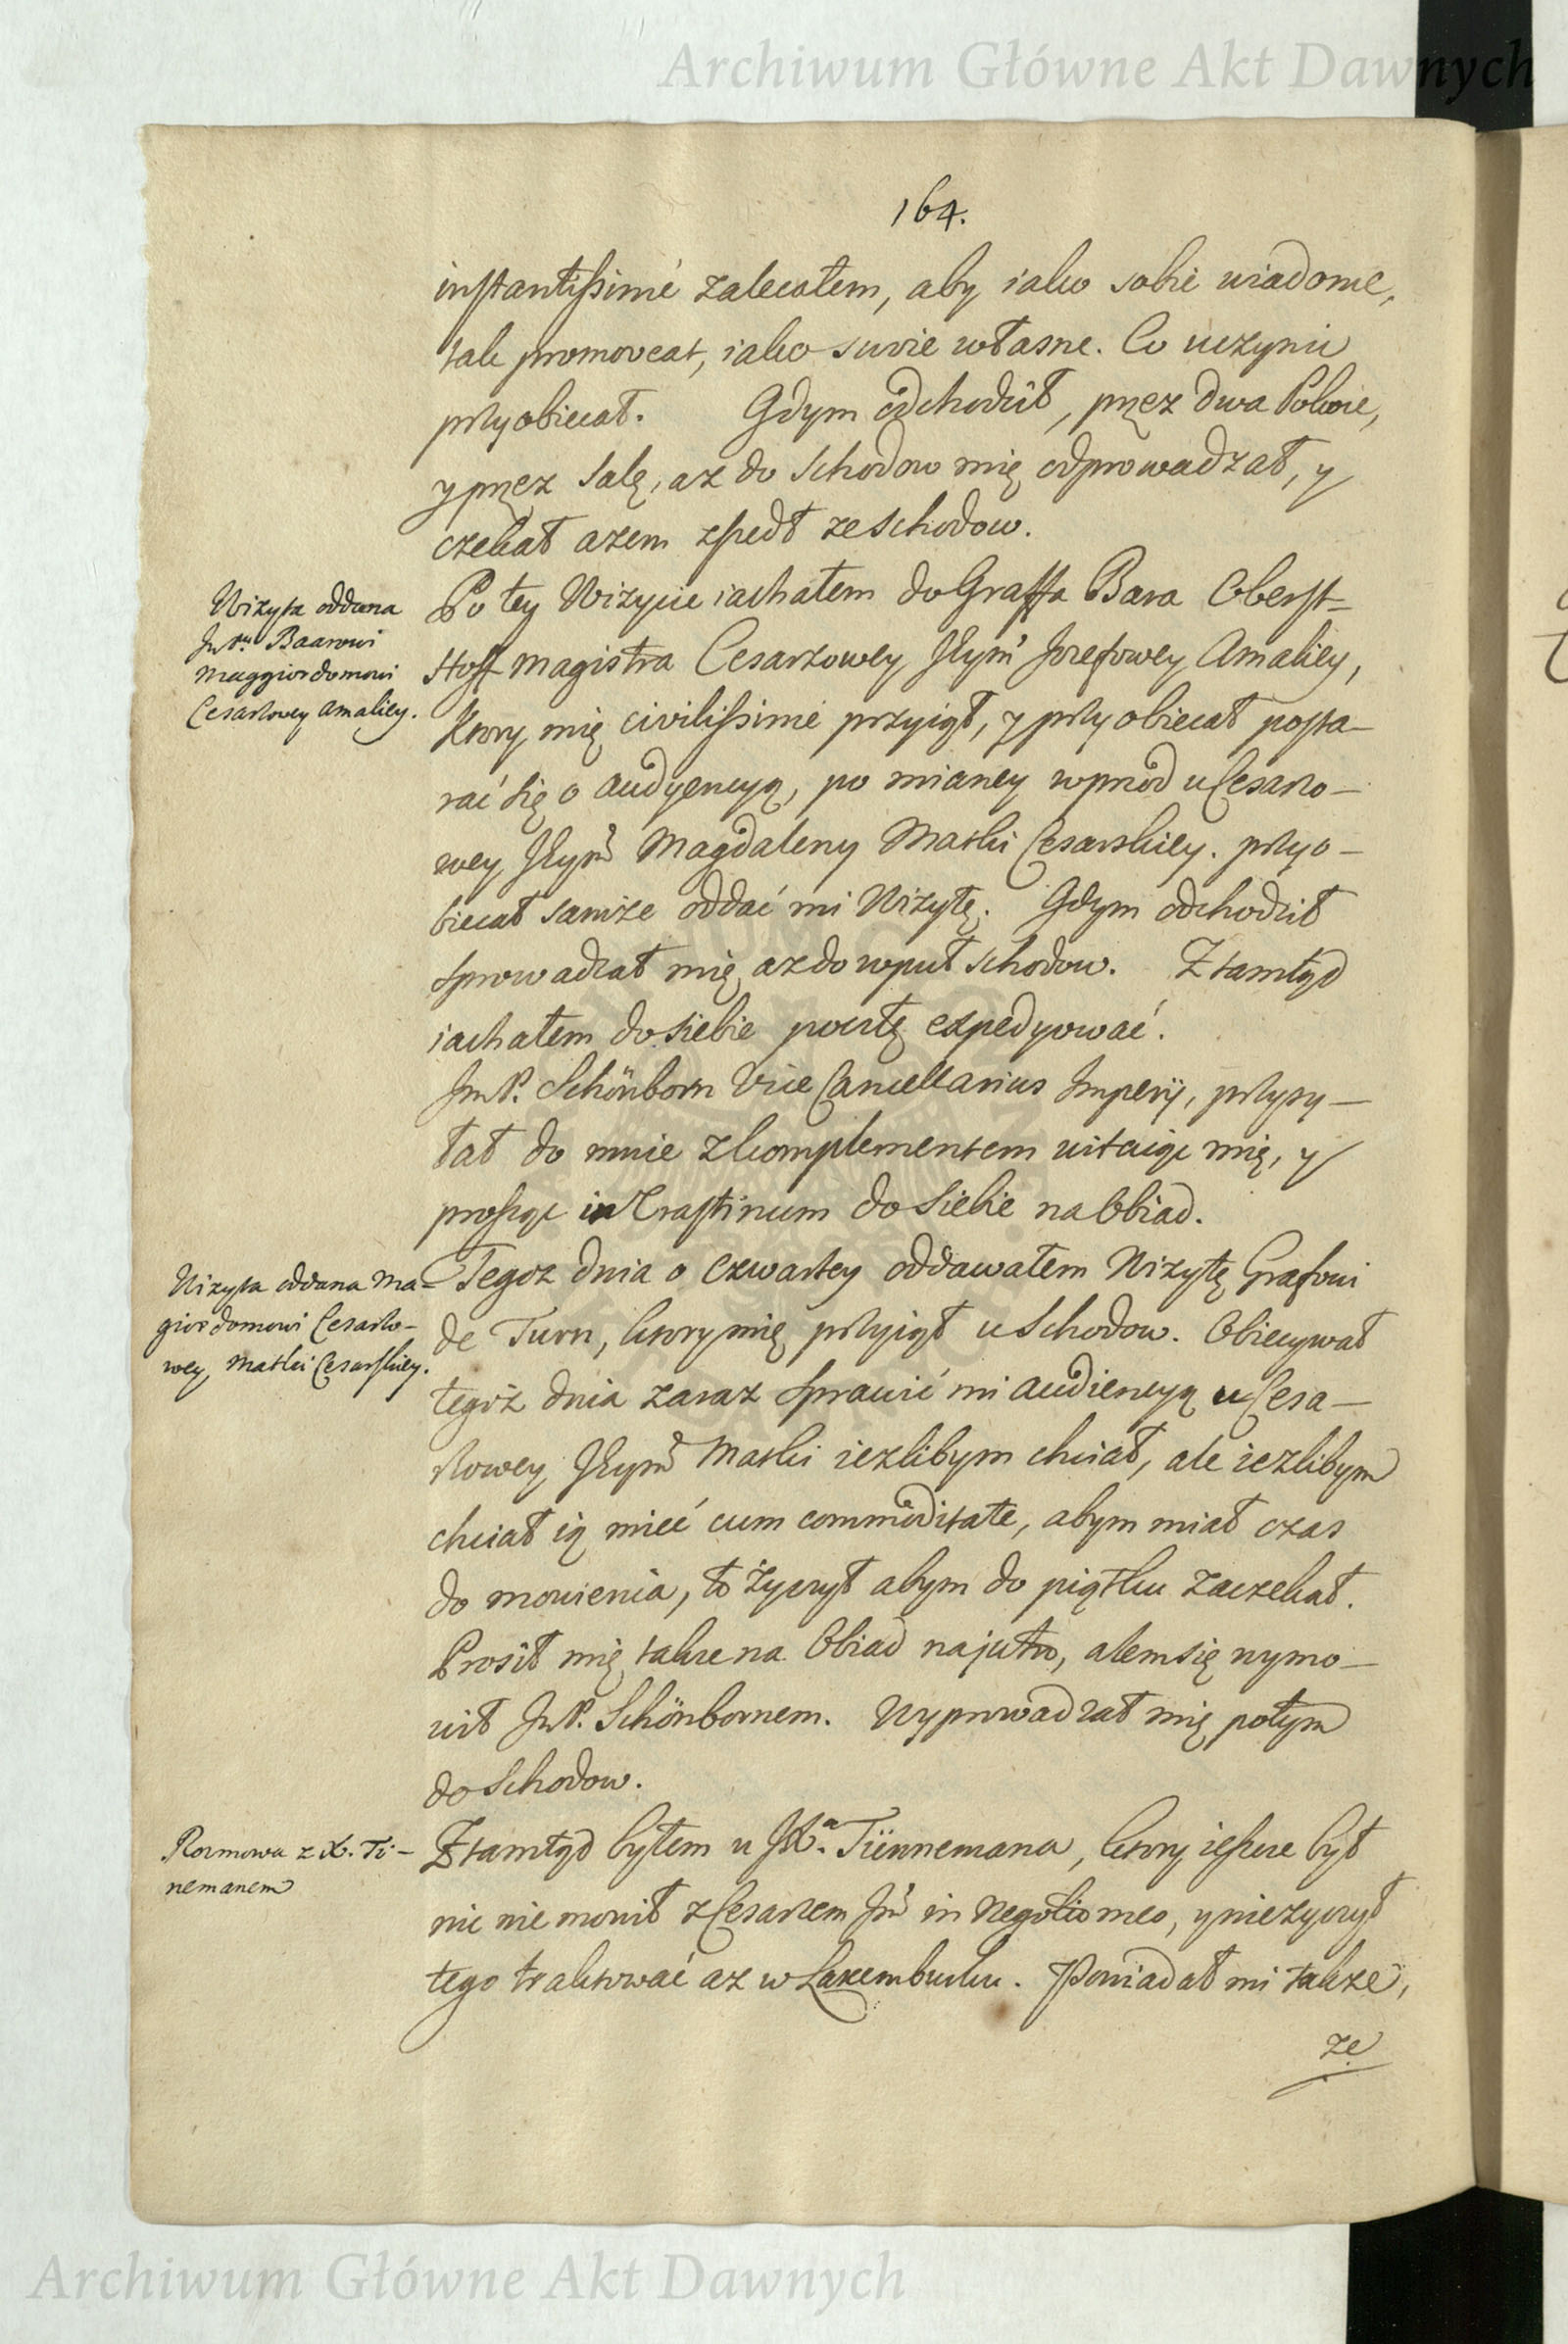 Archiwum Główne Akt Dawnych
164.
instantissimé zalecałem, aby iako sobie wiadome,
tak promoveat, iako swoie własne. Co uczynić
przyobiecał. Gdym odchodził, przez dwa Pokoie,
y przez Salę, az do Schodow mię odprowadzał, y
czekał azem zszedł ze Schodow.
Wizyta oddana
JmPu Baarowi
Maggiordomowi
Cesarzowey Amaliey.
Po tey Wizycie iachałem do Graffa Bara Oberst-
Hoff magistra Cesarzowey JKeym Jozefowey Amaliey,
Ktory mię civilissimé przyiął, y przyobiecał posta-
rać się o audyencyą, po mianey wprzod u Cesarzo-
wey JKeym Magdaleny Matki Cesarskiey. przyo-
biecał tamże oddać mi Wizytę. Gdym odchodził
sprowadzał mię az do wpuł schodow. Ztamtąd
iachałem do siebie pocztę expedyować.
JmP. Schönborn Vice Cancellarius Imperij, przysy-
łał do mnie z komplementem witaiąc mię, y
prosząc in Crastinum do siebie na Obiad.
Wizyta oddana Ma-
giordomowi Cesarzo-
wey, Matki Cesarskiey.
Tegoz dnia o czwartey oddawałem Wizytę Grafowi
de Turn, ktory mię przyiął u Schodow. Obiecywał
tegoż dnia zaraz sprawić mi audiencyą u Cesa-
rzowey JKeym Matki iezlibym chciał, ale iezlibym
chciał ią mieć cum commoditate, abym miał czas
do mowienia, to życzył abym do piątku zaczekał.
Prosił mię takze na Obiad na jutro, alem się wymo-
wił JmP. Schönbornem. Wyprowadzał mię potym
do Schodow.
Rozmowa z X. Ti-
nemanem
Ztamtąd byłem u JXa. Tiinnemana, ktory ieszcze był
nic nie mowił z Cesarzem Jm in Negotio meo, y nie życzył
tego traktować az w Laxemburku. Powiadał mi takze,
ze
Archiwum Główne Akt Dawnych